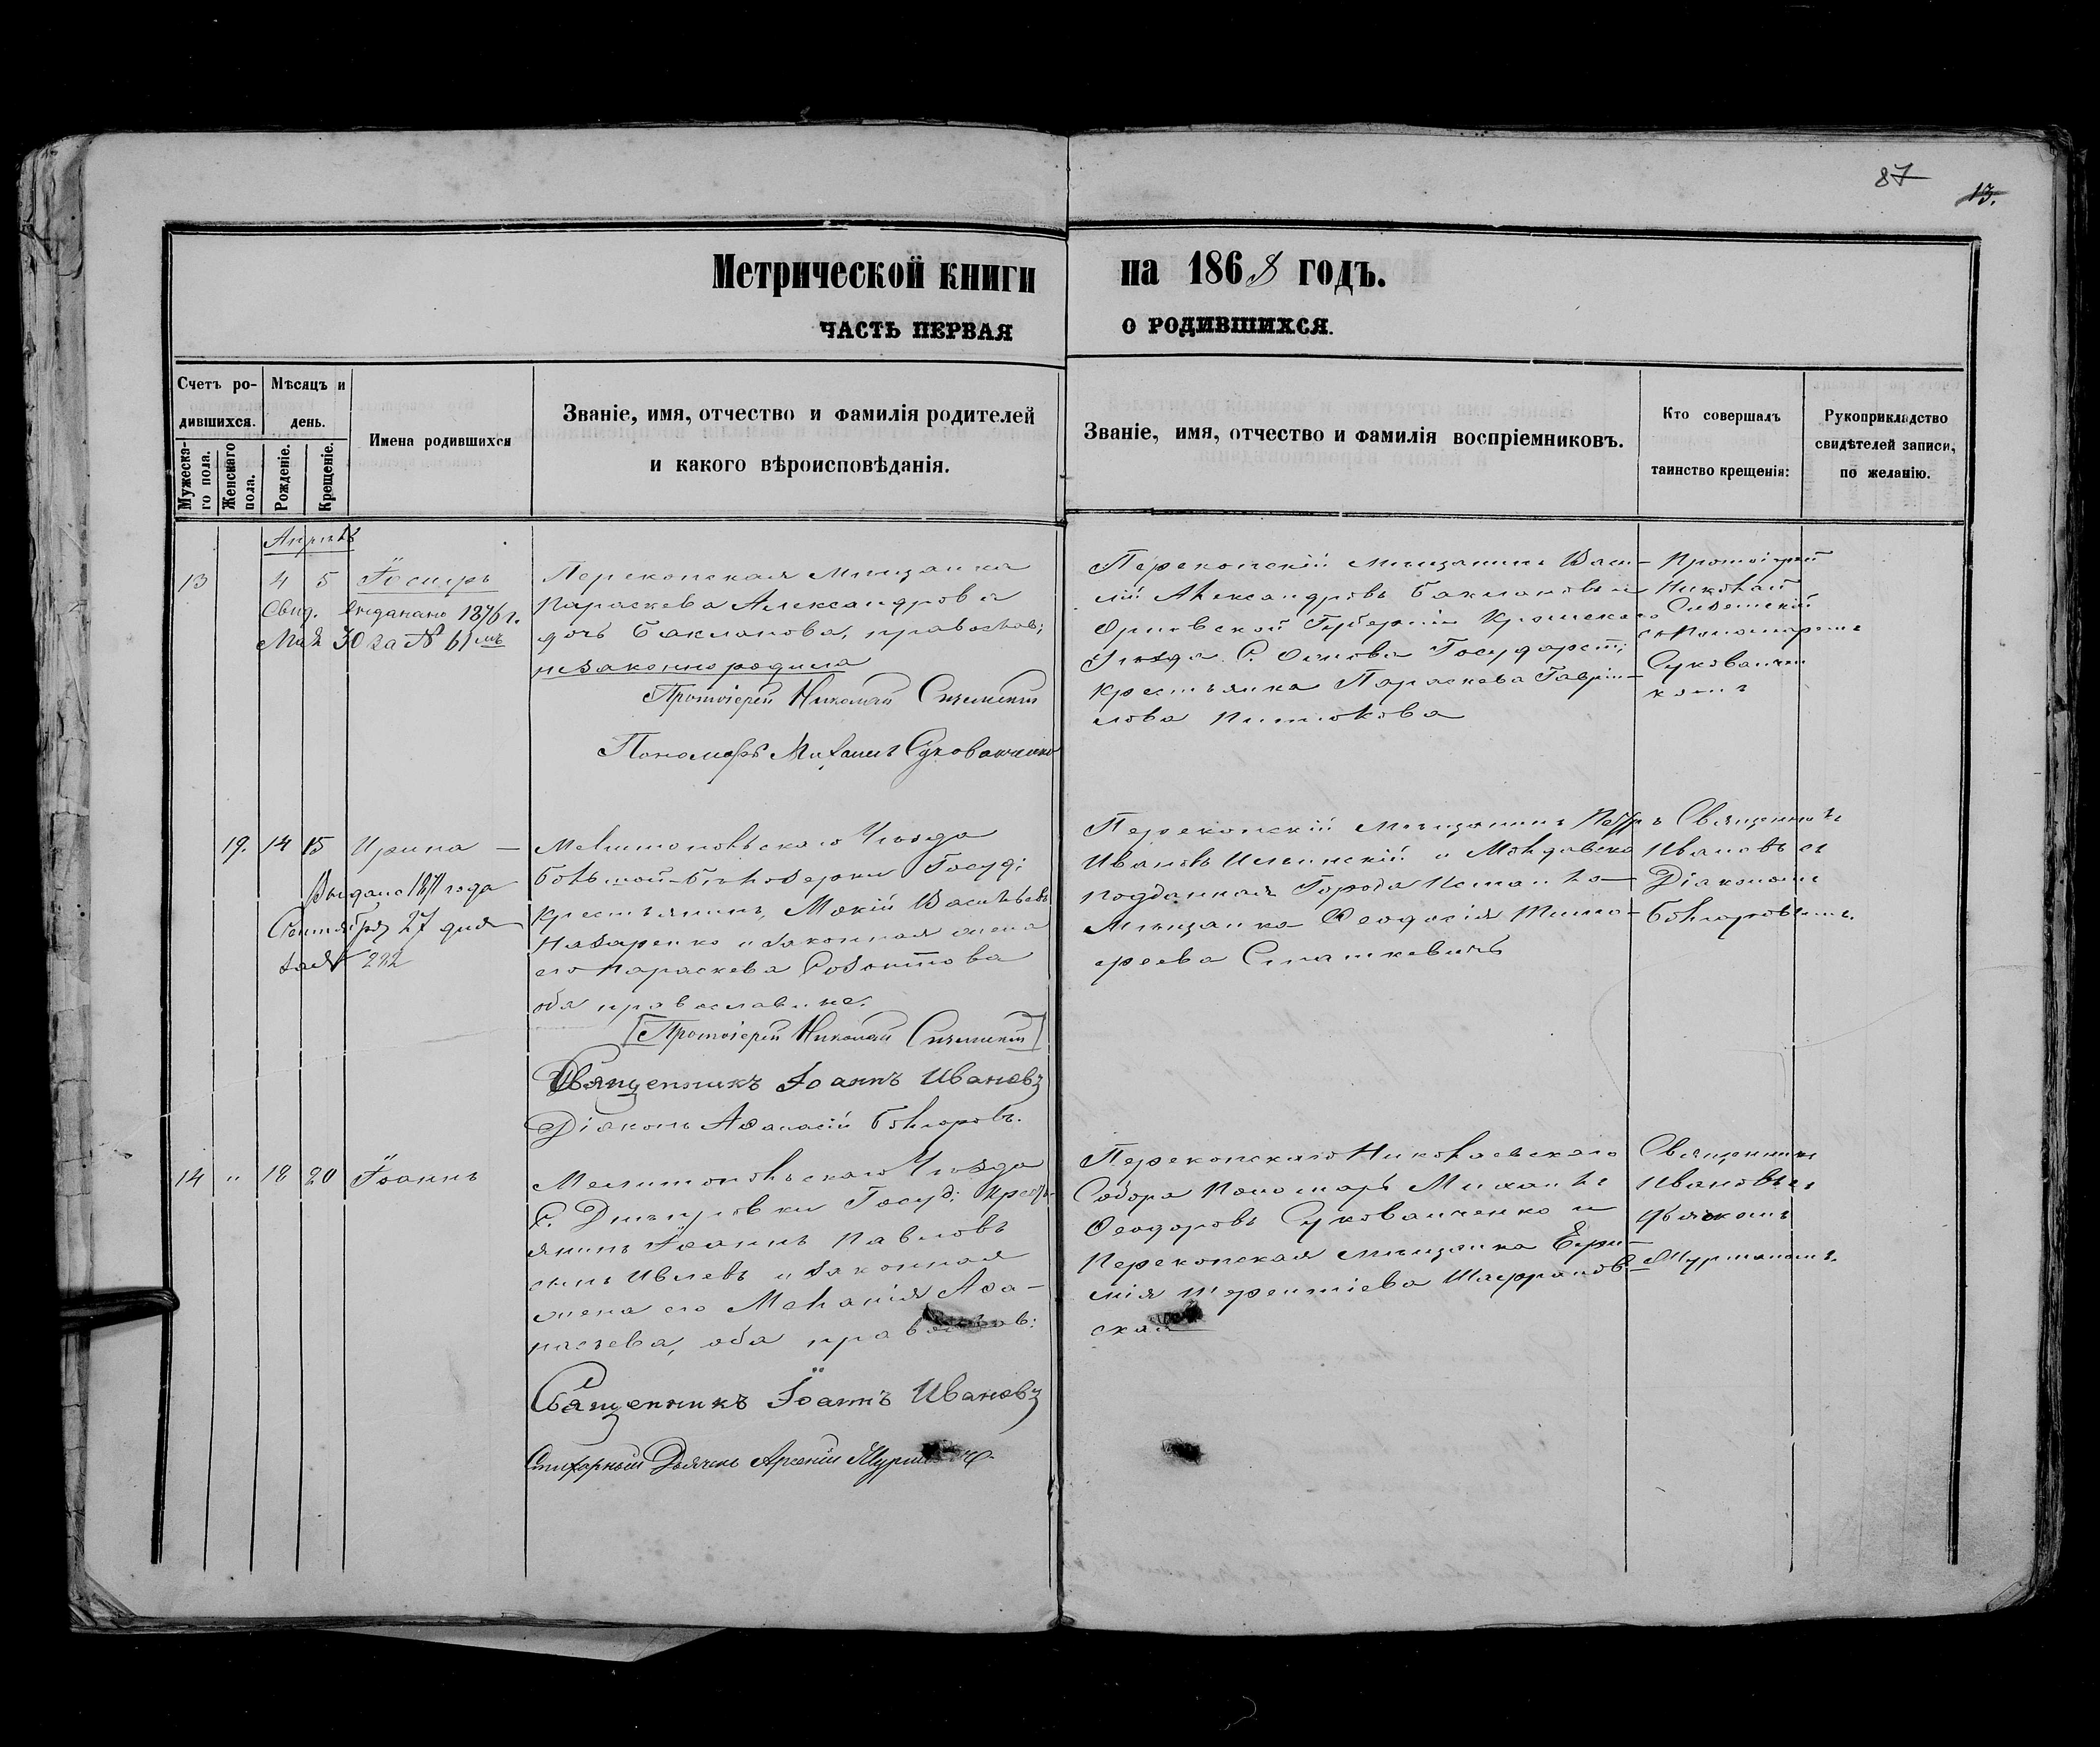 87
13.
Метрической книги на 1868 годъ.
ЧАСТЬ ПЕРВАЯ О РОДИВШИХСЯ.
Счетъ ро-
дившихся.
Мужеска-
го пола.
Женскаго
пола.
Мѣсяцъ и
день.
Рожденіе.
Крещеніе.
Имена родившихся
Званіе, имя, отчество и фамилія родителей
и какого вѣроисповѣданія.
Званіе, имя, отчество и фамилія воспріемниковъ.
Кто совершалъ
таинство крещенія:
Рукоприкладство
свидѣтелей записи,
по желанію.
Апрѣль
13
4 5
Свид. выданно 1876 г.
Мая 30 за № 61
Перекопская мѣщанка
Параскева Александрова
дочь Бакланова, православ;
незаконно родила
Протоіерей Николай
Пономарь Михаилъ Сукованченко
Перекопскій мѣщанинъ Васи-
лій Александровъ Баклановъ и
Орловской Губерніи Кромскаго
Уѣзда С. Государст;
Крестьянка Параскева Гаврі-
лова
Протоіерей
Николай
съ Пономаремъ
Сукованчен
комъ
19. 14 15 Ирина —
Выдано 1887 года
Сентября 27 дня
за № 222
Мелитопольскаго Уѣзда
Большой Бѣлозерки Госуд:
Крестьянинъ, Мокій Васильевъ
Назаренко и законная жена
его Параскева
оба православные.
Протоіерей Николай
Священникъ Іоаннъ Ивановъ
Діаконъ Аѳанасій Бѣлюговъ.
Перекопскій мѣщанинъ Петръ
Ивановъ Ильинскій и Молдавско
подданная Города Измаила
Мѣщанка Ѳеодосія Тимо-
ѳеева Сташкевичъ
Священникъ
Ивановъ съ
Діакономъ
14 " 18 20 Іоаннъ
Мелитопольскаго Уѣзда
С. Днѣпровки Госуд: Кресть
янинъ Іоаннъ Павловъ
сынъ Ивлевъ и законная
жена его Меланія Аѳа-
насьева, оба православ:
Священникъ Іоаннъ Ивановъ
Стихарный Дьячекъ Арсеній
Перекопскаго Николаевскаго
Собора Пономарь Михаилъ
Ѳеодоровъ Сукованченко и
Перекопская мѣщанка Евфи-
мія Терентіева Шафранов-
ская
Священникъ
Ивановъ съ
дьячкомъ